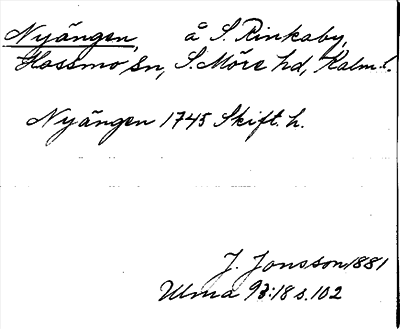 Nyängen, å S. Rinkaby,
Hossmo sn, S. Möre hd, Kalm. l.
Nyängen 1745 Skift. h.
J. Jonsson 1881
Ulma 93:18 s. 102